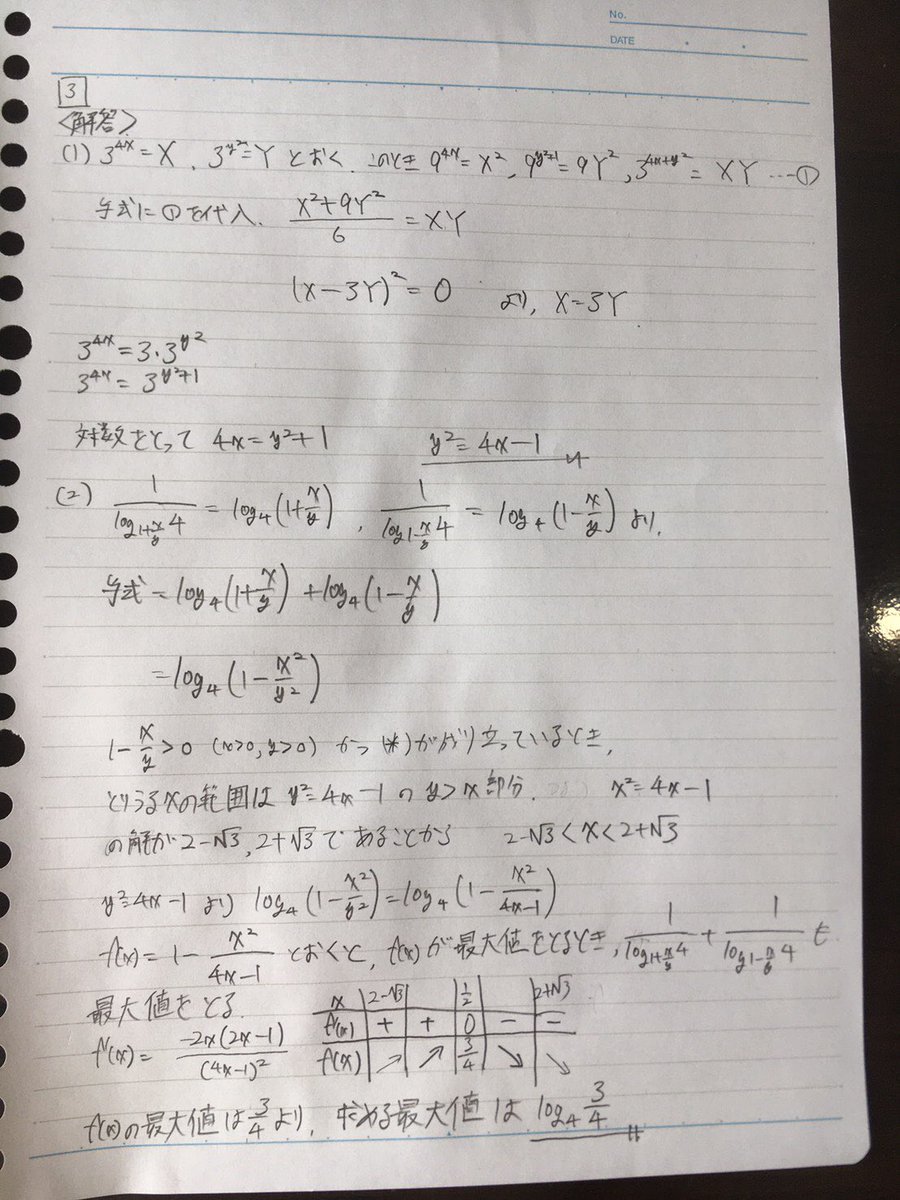 No.
DATE
3
<解答>
(1) 3^{4x}=X, 3^{y²}=Y とおく. このとき 9^{4x}=X², 9^{y²+1}=9Y², 3^{4x+y²}=XY …①
与式に①を代入. (X²+9Y²)/6 = XY
(X-3Y)²=0 より, X=3Y
3^{4x}=3・3^{y²}
3^{4x}=3^{y²+1}
対数をとって 4x=y²+1 y²=4x-1
(2) 1/log_{1+x/y}4 = log₄(1+x/y), 1/log_{1-x/y}4 = log₄(1-x/y) より,
与式=log₄(1+x/y)+log₄(1-x/y)
=log₄(1-x²/y²)
1-x/y>0 (x>0, y>0) かつ (*)がなり立っているとき,
とりうるxの範囲は y²=4x-1 の y>x 部分. x²=4x-1
の解が 2-√3, 2+√3 であることから 2-√3<x<2+√3
y²=4x-1 より log₄(1-x²/y²)=log₄(1-x²/(4x-1))
f(x)=1-x²/(4x-1) とおくと, f(x)が最大値をとるとき, 1/log_{1+x/y}4 + 1/log_{1-x/y}4 も
最大値をとる.
f'(x)= -2x(2x-1)/(4x-1)²
x 2-√3 1/2 2+√3
f'(x) + + 0 - -
f(x) ↗ ↗ 3/4 ↘ ↘
f(x)の最大値は 3/4 より, 求める最大値は log₄ 3/4